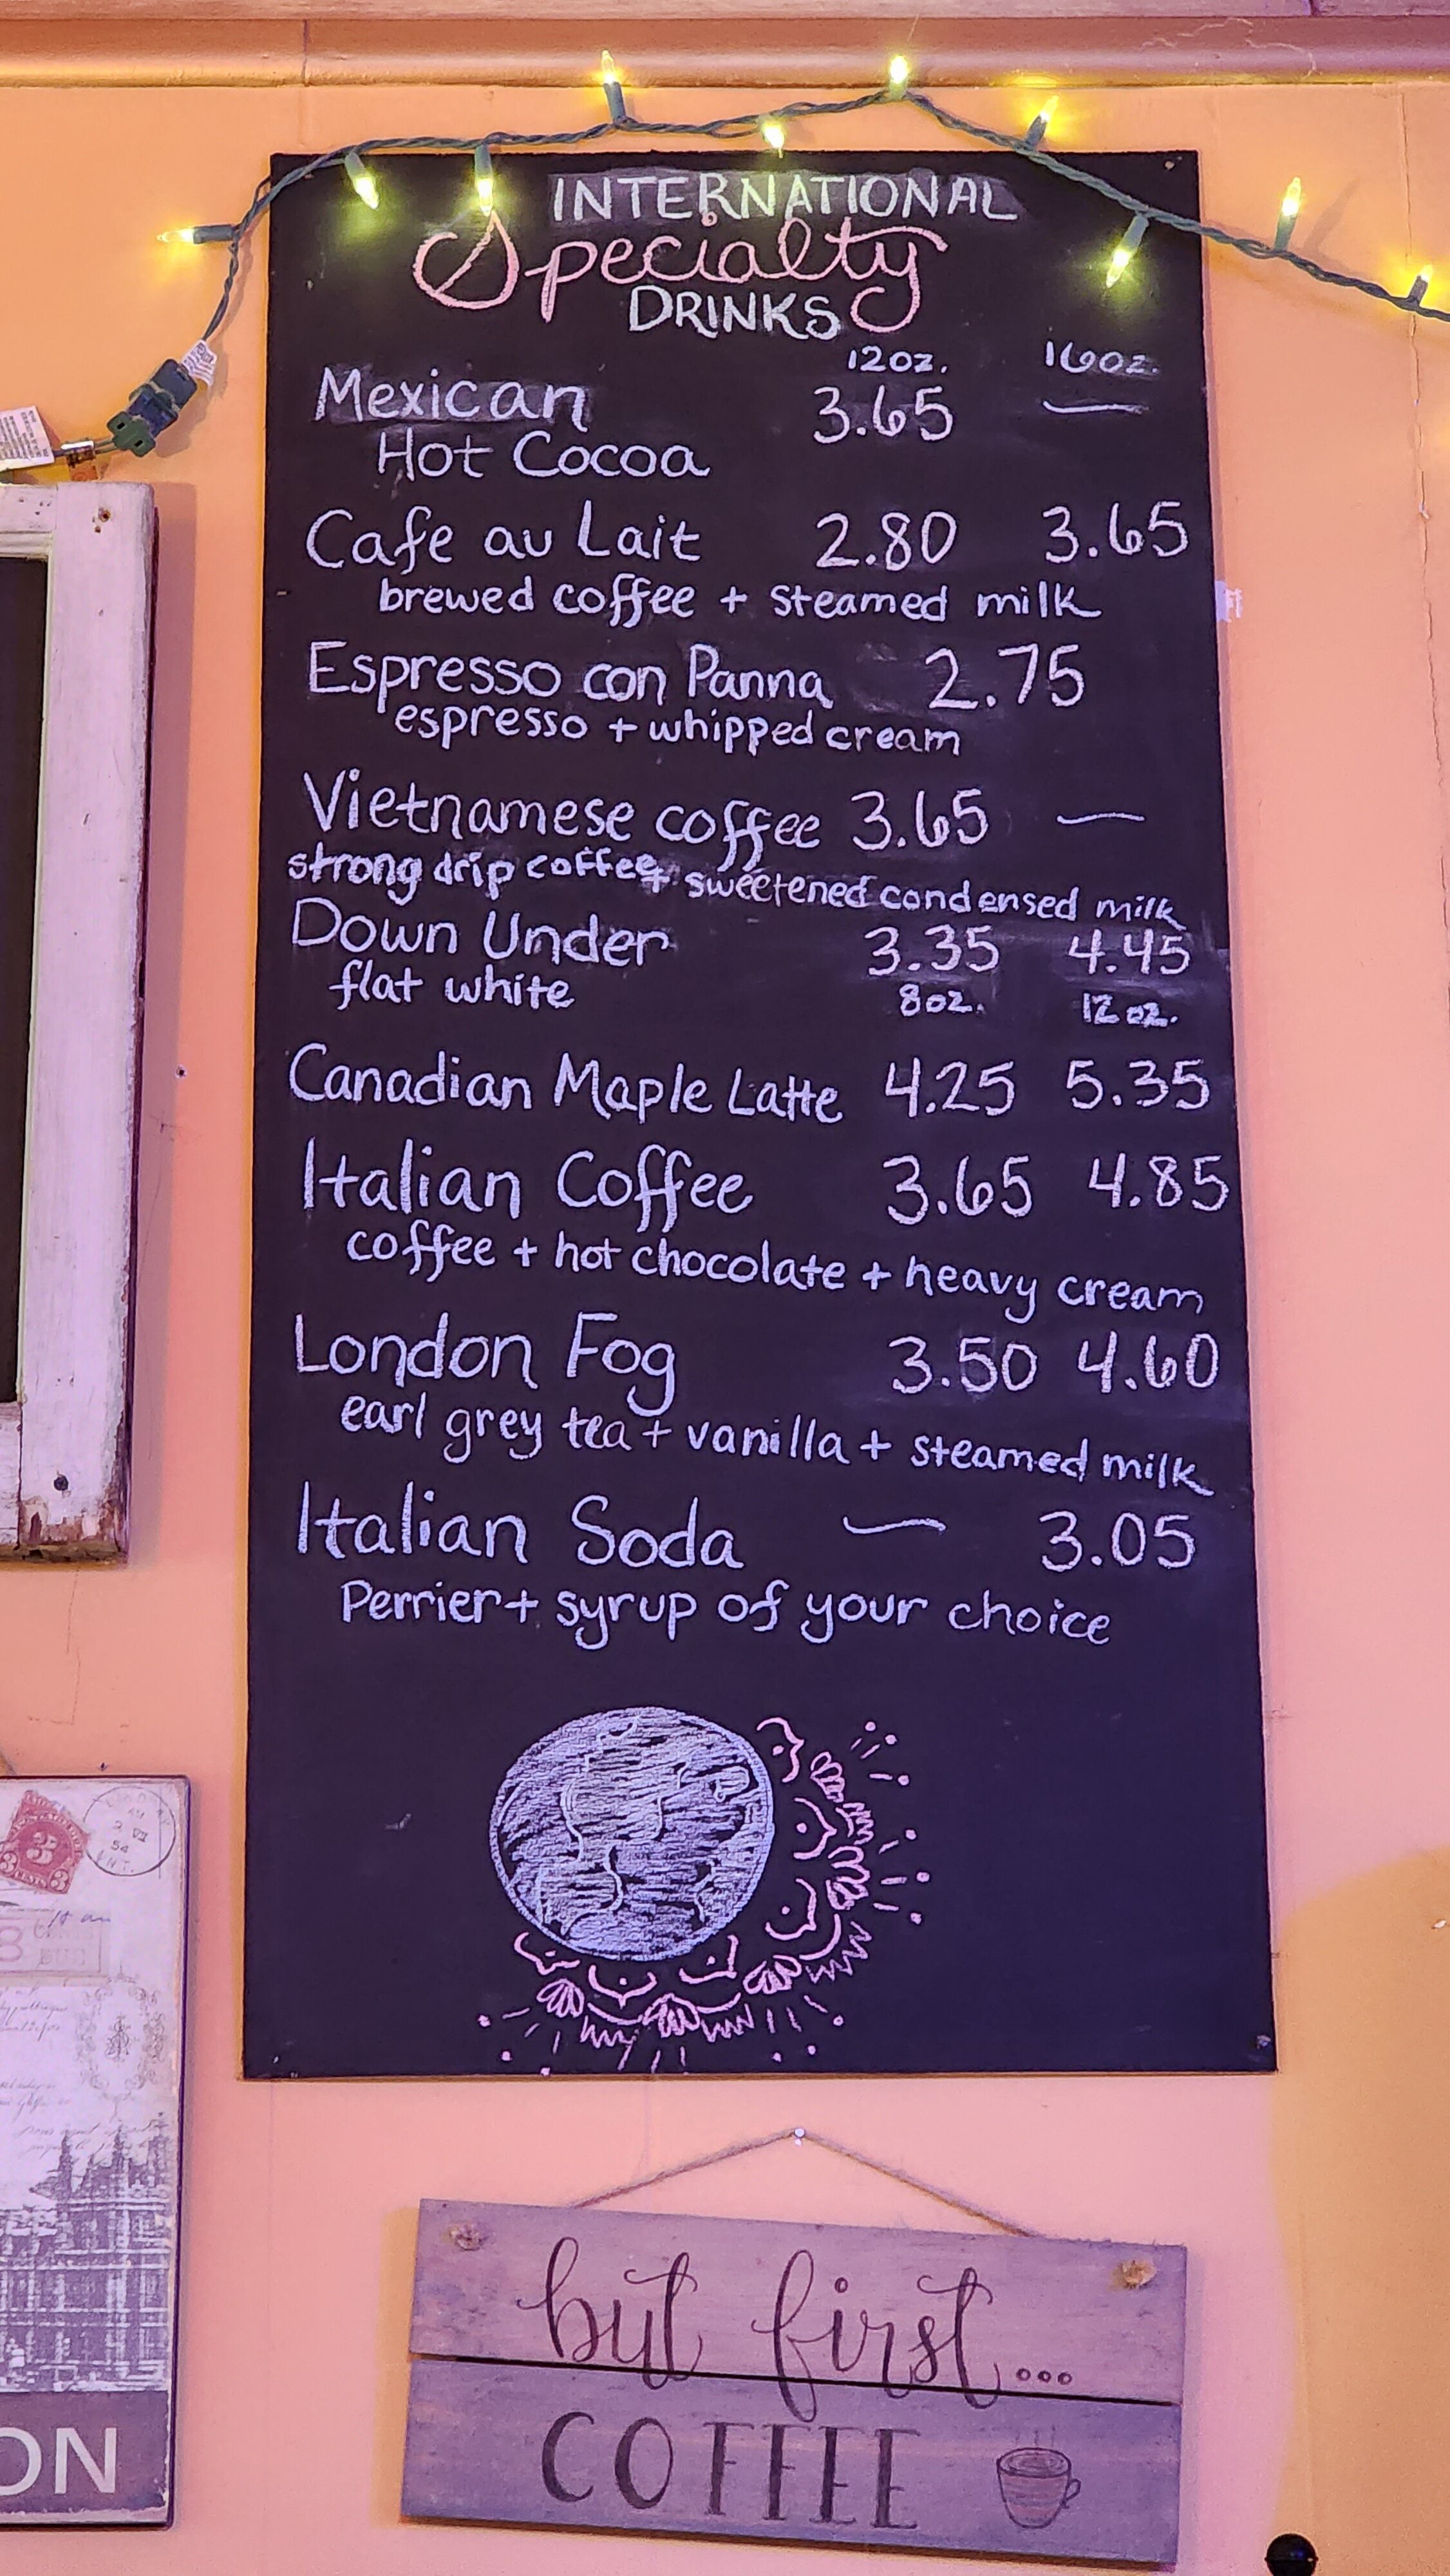 INTERNATIONAL
Specialty
DRINKS
12oz. 16oz.
Mexican 3.65 —
Hot Cocoa
Cafe au Lait 2.80 3.65
brewed coffee + steamed milk
Espresso con Panna 2.75
espresso + whipped cream
Vietnamese coffee 3.65 —
strong drip coffee + sweetened condensed milk
Down Under 3.35 4.45
flat white 8oz. 12oz.
Canadian Maple Latte 4.25 5.35
Italian Coffee 3.65 4.85
coffee + hot chocolate + heavy cream
London Fog 3.50 4.60
earl grey tea + vanilla + steamed milk
Italian Soda — 3.05
Perrier + syrup of your choice
3
ON
but first...
COFFEE